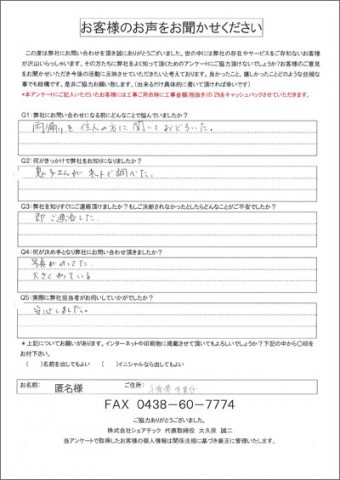 お客様のお声をお聞かせください
この度は弊社にお問い合わせを頂き誠にありがとうございました。世の中には弊社の存在やサービスをご存知ないお客様
が沢山いらっしゃいます。その方たちに弊社をよく知って頂くためのアンケートにご協力頂けないでしょうか?お客様のご意見
をお聞かせいただき今後の活動に反映させていただきたいと考えております。良かったこと、嬉しかったことどのような些細な
事でも結構です。是非ご協力お願い致します。(出来るだけ具体的に書いて頂けると幸いです)
*本アンケートにご記入いただいたお客様には工事ご用命時に工事金額(税抜き)の2%をキャッシュバックさせていただきます。
Q1:弊社にお問い合わせになる前にどんなことで悩んでいましたか?
雨漏りを住人の方に聞いておどろいた。
Q2:何がきっかけで弊社をお知りになりましたか?
息子さんがネットで調べた。
Q3:弊社を知りすぐにご連絡頂けましたか?もしご決断されなかったとしたらどんなことがご不安でしたか?
即ご連絡した。
Q4:何が決め手となり弊社にお問い合わせ頂きましたか?
写真がのってた
大きくやっている
Q5:実際に弊社担当者がお伺いしていかがでしたか?
安心しました。
*上記についてお願いがあります。インターネットや印刷物に掲載させて頂いてもよろしいでしょうか?下記の中から〇印を
お付け下さい。
( )名前を出してもよい ( )イニシャルなら出してもよい
お名前: 匿名様 ご住所: 千葉県
FAX 0438-60-7774
ご協力ありがとうございました。
株式会社シェアテック 代表取締役 大久保 誠二
当アンケートで取得したお客様の個人情報は関係法規に基づき厳正に管理いたします。